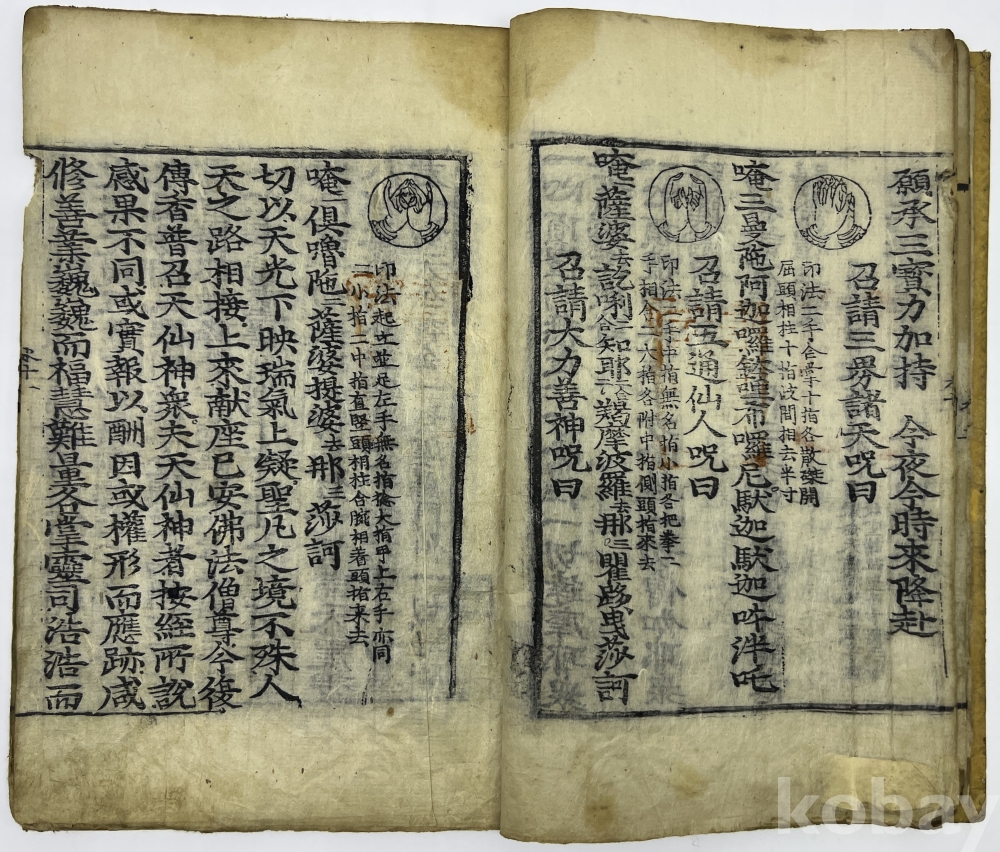 願承三寶力加持 今夜今時來降赴
召請三界諸天呪曰
印法二手合掌十指各散磔開
屈頭相拄十指波間相去半寸
唵三曼陁阿迦囉鉢哩布囉尼馱迦馱迦吽泮吒
召請五通仙人呪曰
印法二手中指無名指小指各把拳二
手相合二大指各附中指側頭指來去
唵薩婆
召請大力善神呪曰
印法起立並足左手無名指
二小指二中指直竪頭相拄合腕相着頭指來去
唵俱嚕陁薩婆提婆去那三莎訶
切以天光下映瑞氣上凝聖凡之境不殊人
天之路相接上來献座已安佛法僧尊今復
傳香普召天仙神衆夫天仙神者按經所說
感果不同或實報以酬因或權形而應跡咸
修善業巍巍而福慧難量各掌靈司浩浩而
kobay